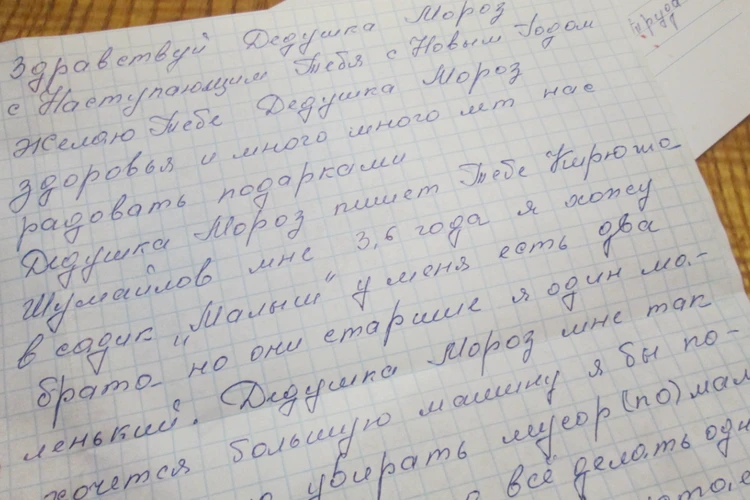 Здравствуй Дедушка Мороз
с Наступающим Тебя с Новым Годом
Желаю Тебе Дедушка Мороз
здоровья и много много лет нас
радовать подарками
Дедушка Мороз пишет Тебе Кирюша
Шумайлов мне 3,6 года я хожу
в садик „Малыш" у меня есть два
брата но они старшие я один ма-
ленький. Дедушка Мороз мне так
хочется большую машину я бы по-
убирать мусор (по) мал
всё делать одн
труда